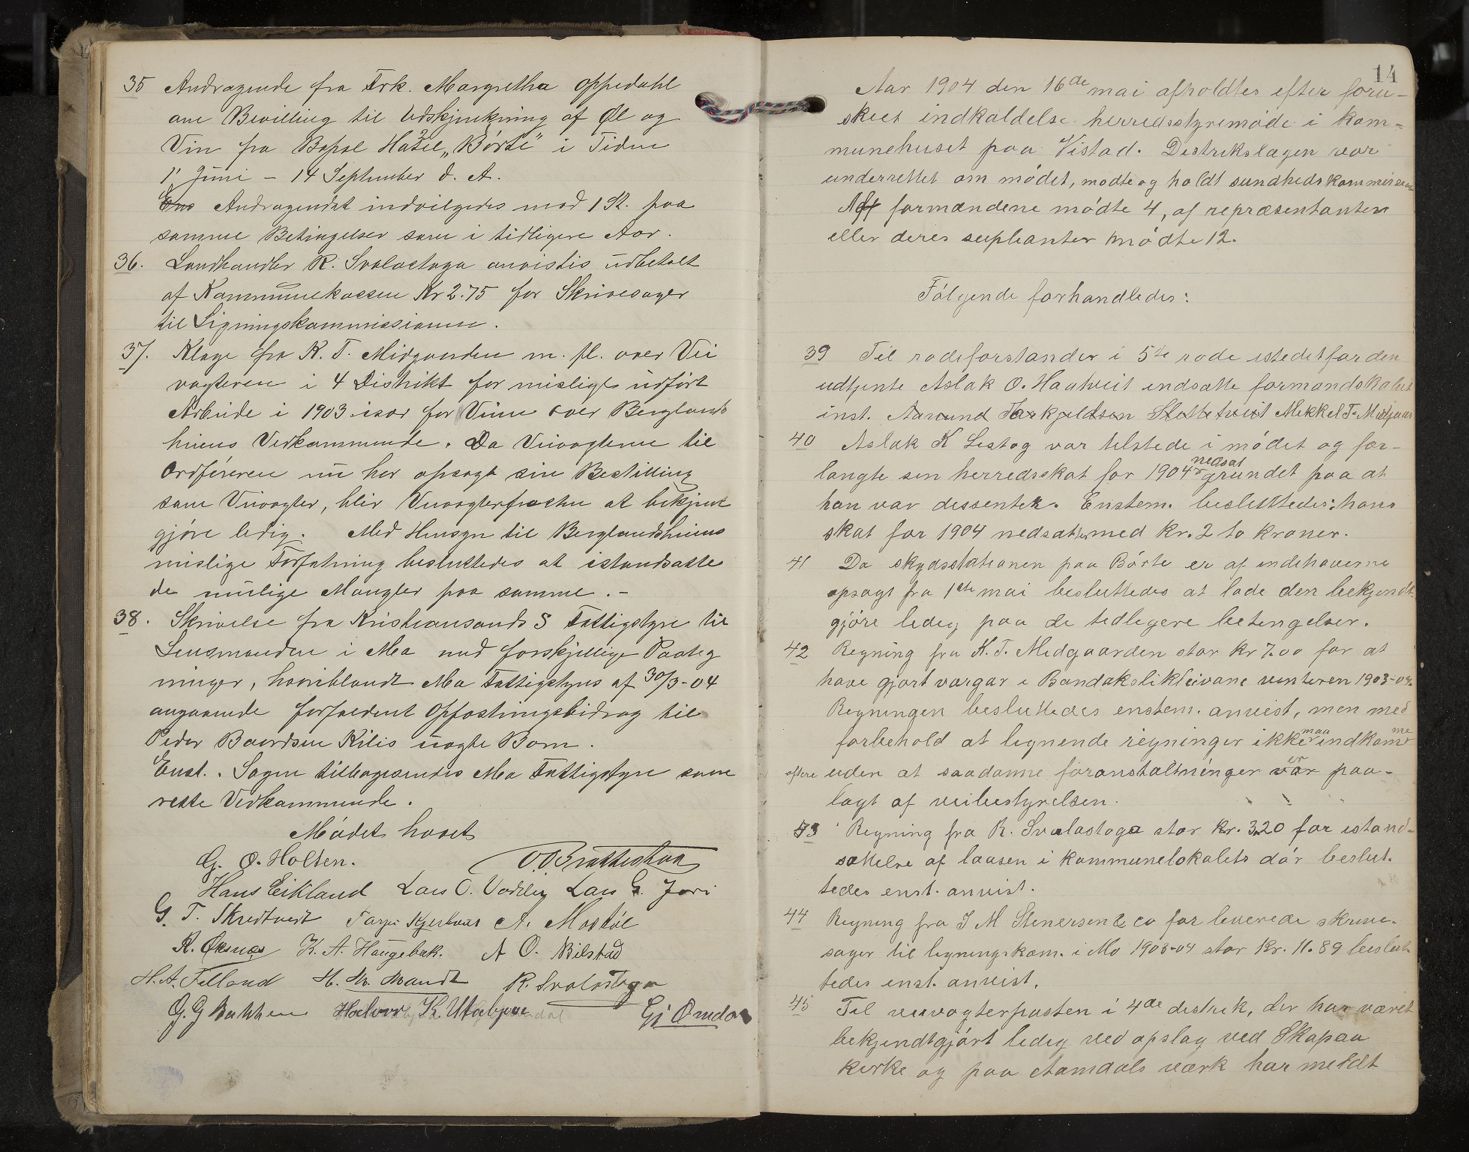 35 Andragende fra Frk. Margretha Oppedahl
om Bevilling til Udskjænkning af Øl og
Vin fra Hotel „Børte" i Tiden
1' Juni – 14 September d. A.
Andragendet indvilgedes mod 1 St. paa
samme Betingelser som i tidligere Aar.
36. Landhandler R. Svalastoga anvistes udbetalt
af Kommunekassen Kr 2.75 for Skrivesager
til Ligningskommissionen.
37. Klage fra K. T. Midgaarden m. fl. over Vei
vogteren i 4 Distrikt for mislige udført
Arbeide i 1903 især for Veien over Berglands
heiens Vedkommende. Da Veivogteren til
Ordføreren nu har opsagt sin Bestilling
som Veivogter, blir Veivogterposten at bekjent
gjøre ledig. Med Hensyn til Berglandsheiens
mislige Forfatning besluttedes at istandsætte
de mulige Mangler paa samme. –
38. Skrivelse fra Kristiansands S Fattigstyre til
Lensmanden i Mo med forskjellige Paateg
ninger, hvoriblandt Mo Fattigstyres af 30/3-04
angaaende forfaldent Opfostringsbidrag til
Peder Baardsen Kilis uægte Barn.
Enst. Sagen tilbagesendes Mo Fattigstyre som
rette Vedkommende.
Mødet hævet
G. O. Holten. O Brattestaa
Hans Eikland Lars O. Vadlie Lars G. Jore
G. T. Skredtveit A. Mostøl
R. Øksnes K. A. Haugebak. A O. Bilstad
H. A. Felland H. M. Mandt R. Svalastoga
G. G Bakken Halvor K Utabjaa Gj Omdal
14
Aar 1904 den 16de mai afholdtes efter foru-
skeet indkaldelse herredsstyremøde i kom-
munehuset paa Vistad. Distrikslægen var
underrettet om mødet, mødte og holdt sundhedskommission
Af formændene mødte 4, af repræsentanten
eller deres supleanter mødte 12.
Følgende forhandledes:
39 Til rodeforstander i 5te rode istedetfor den
udtjente Aslak O. Haatveit indsatte formandskabet
inst. Aamund Torkjeldsen Slettetveit Mikkel T. Midjaas
40 Aslak K Lestog var tilstede i mødet og for-
langte sin herredsskat for 1904 nedsat grundet paa at
han var dissenter. Enstem. besluttedes: hans
skat for 1904 nedsættes med kr. 2 to kroner.
41 Da skydsstationen paa Børte er af indehaverne
opsagt fra 1ste mai besluttedes at lade den bekjendt-
gjøre ledig paa de tidligere betingelser.
42 Regning fra K. T. Midgaarden stor kr 7.00 for at
have gjort vargar i Bandakslikleivane vinteren 1903-04.
Regningen besluttedes enstem. anvist, men med
forbehold at lignende regninger ikke maa indkomme
oftere uden at saadanne foranstaltninger er paa-
lagt af veibestyrelsen.
43 Regning fra R. Svalastoga stor kr. 3.20 for istand-
sættelse af laasen i kommunelokalets dør beslut
tedes enst. anvist.
44 Regning fra J M Stenersen & co for leverede skrive-
sager til ligningskom. i Mo 1903-04 stor kr. 11.89 beslut
tedes enst. anvist.
45 Til veivogterposten i 4de distrik, der har været
bekjendtgjørt ledig ved opslag ved Skapaa
kirke og paa Aamdals værk har meldt